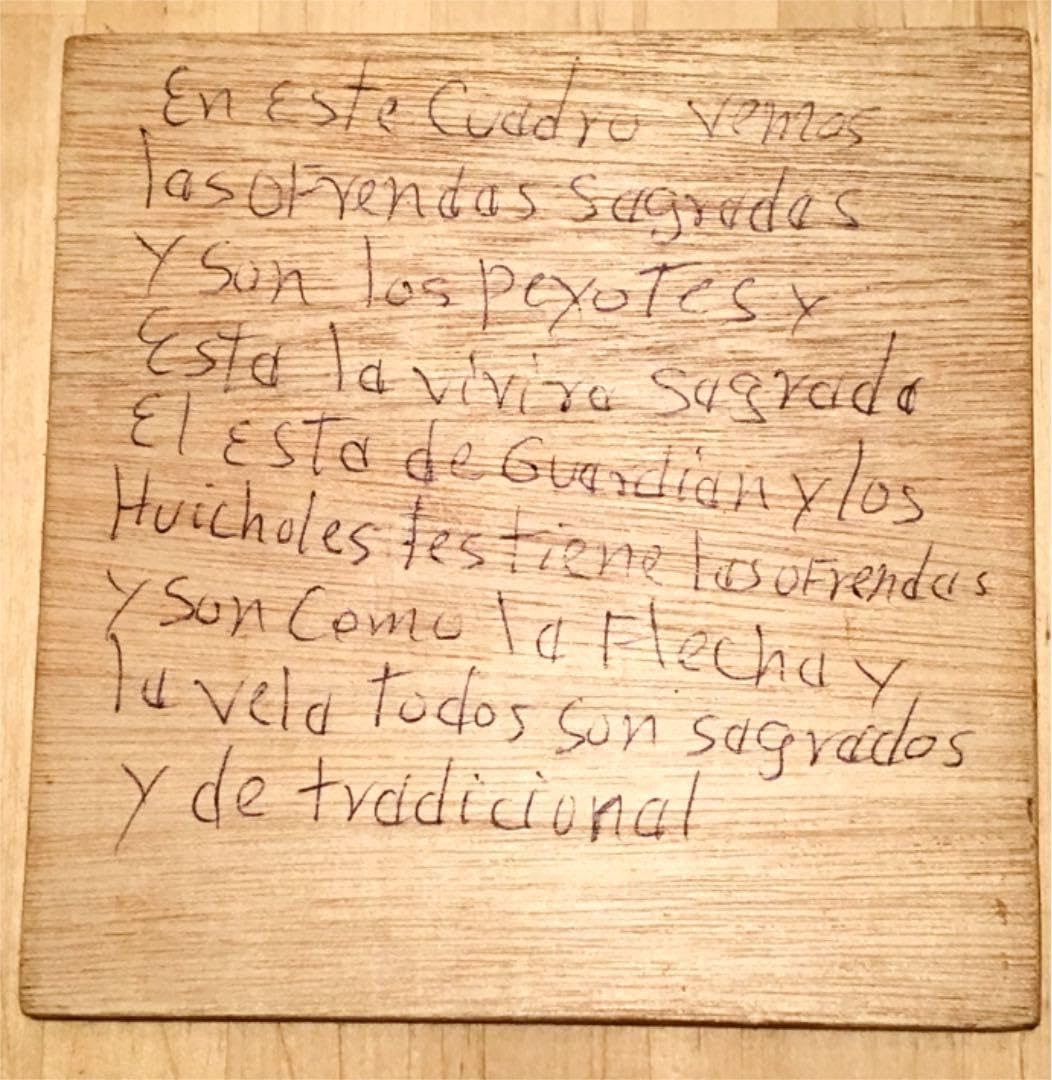 En Este Cuadro vemos
las oFrendas sagradas
Y son los peyoTes y
Esta la vivira sagrada
El esTa de Guardian y los
Huicholes les tiene las oFrendas
y son como la Flecha y
la vela Todos son sagrados
y de tradicional